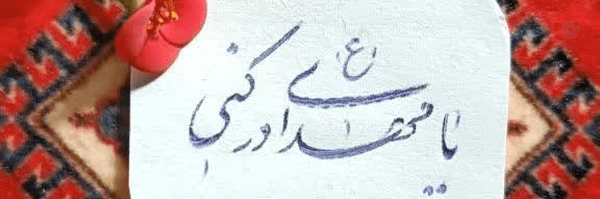 یا مهدی (ع) ادرکنی